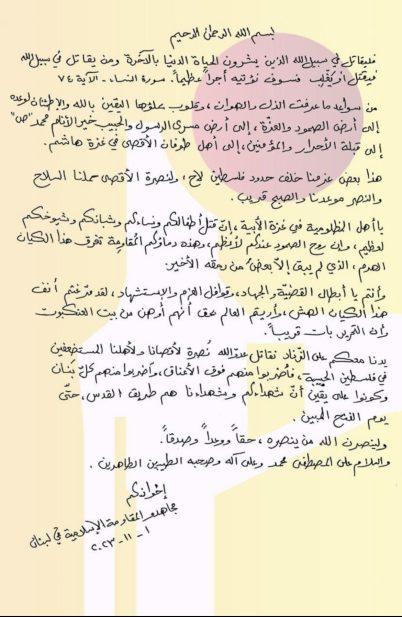 بسم الله الرحمن الرحيم
فليقاتل في سبيل الله الذين يشرون الحياة الدنيا بالآخرة ومن يقاتل في سبيل الله
فيقتل أو يغلب فسوف نؤتيه أجراً عظيماً. سورة النساء - الآية ٧٤
من سواعد ما عرفت الذل والهوان، وقلوب ملؤها اليقين بالله والإطمئنان لوعده
إلى أرض الصمود والعزّة، إلى أرض مسرى الرسول والحبيب خير الأنام محمد "ص"
إلى قبلة الأحرار والمؤمنين، إلى أهل طوفان الأقصى في غزة هاشم.
هذا بعض عزمنا خلف حدود فلسطين لاح، ولنصرة الأقصى حملنا السلاح
والنصر موعدنا والصبح قريب.
يا أهل المظلومية في غزة الأبية، إنّ قتل أطفالكم ونساءكم وشبانكم وشيوخكم
لعظيم، وإن روح الصمود عندكم لأعظم، وهذه دماؤكم المُقاوِمة تغرق هذا الكيان
الهرم، الذي لم يبق إلّا بعضٌ من رمقه الأخير.
وأنتم يا أبطال القضيّة والجهاد، وقوافل العزم والإستشهاد، لقد مرّغتم أنف
هذا الكيان الهش، وأريتم العالم حق أنهم أوهن من بيت العنكبوت
وأن التحرير بات قريباً.
يدنا معكم على الزّناد نقاتل عدوّ الله نُصرة لأقصانا ولأهلنا المستضعفين
في فلسطين الحبيبة، فأضربوا منهم فوق الأعناق، وأضربوا منهم كلّ بنان
وكونوا على يقين أنّ شهداءكم وشهداءنا هم طريق القدس حتّى
يوم الفتح المبين.
ولينصرن الله من ينصره، حقاً ووعداً وصدقاً.
والسلام على المصطفى محمد وعلى آله وصحبه الطيبين الطاهرين.
إخوانكم
مجاهدو المقاومة الإسلامية في لبنان
١-١١-٢٠٢٣